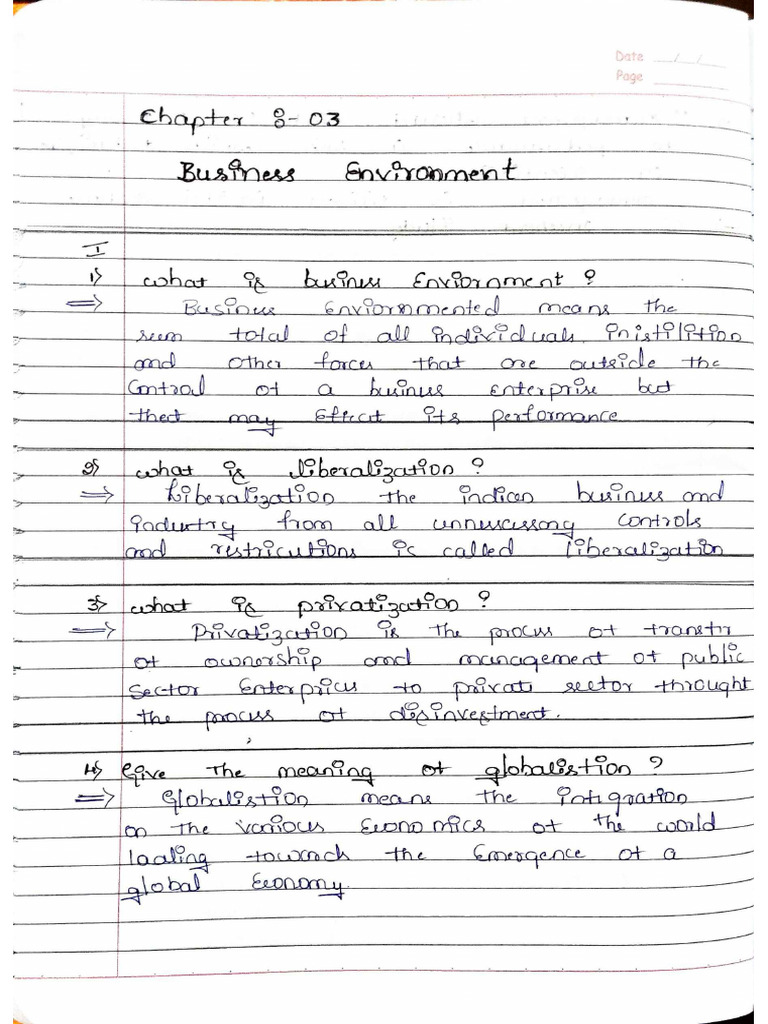 Date __/__/__
Page ______
Chapter 8-03
Business Environment
I
1) What is business Enviornment ?
⇒ Business Enviornmented means the
sum total of all individuals, inistilition
and other forces that are outside the
Control of a business enterprise but
thect may Effect its performance
2) What is liberalization ?
⇒ Liberalization the indian business and
industry from all unnecessary controls
and restricutions is called liberalization
3) What is privatization ?
⇒ Privatization is the process of transfr
of ownership and management of public
Sector Enterprices to private sector throught
the process of disinvestment.
4) Give The meaning of globalistion ?
⇒ Globalistion means the intigration
on the various Economics of the world
laaling towards the Emergence of a
global Economy.